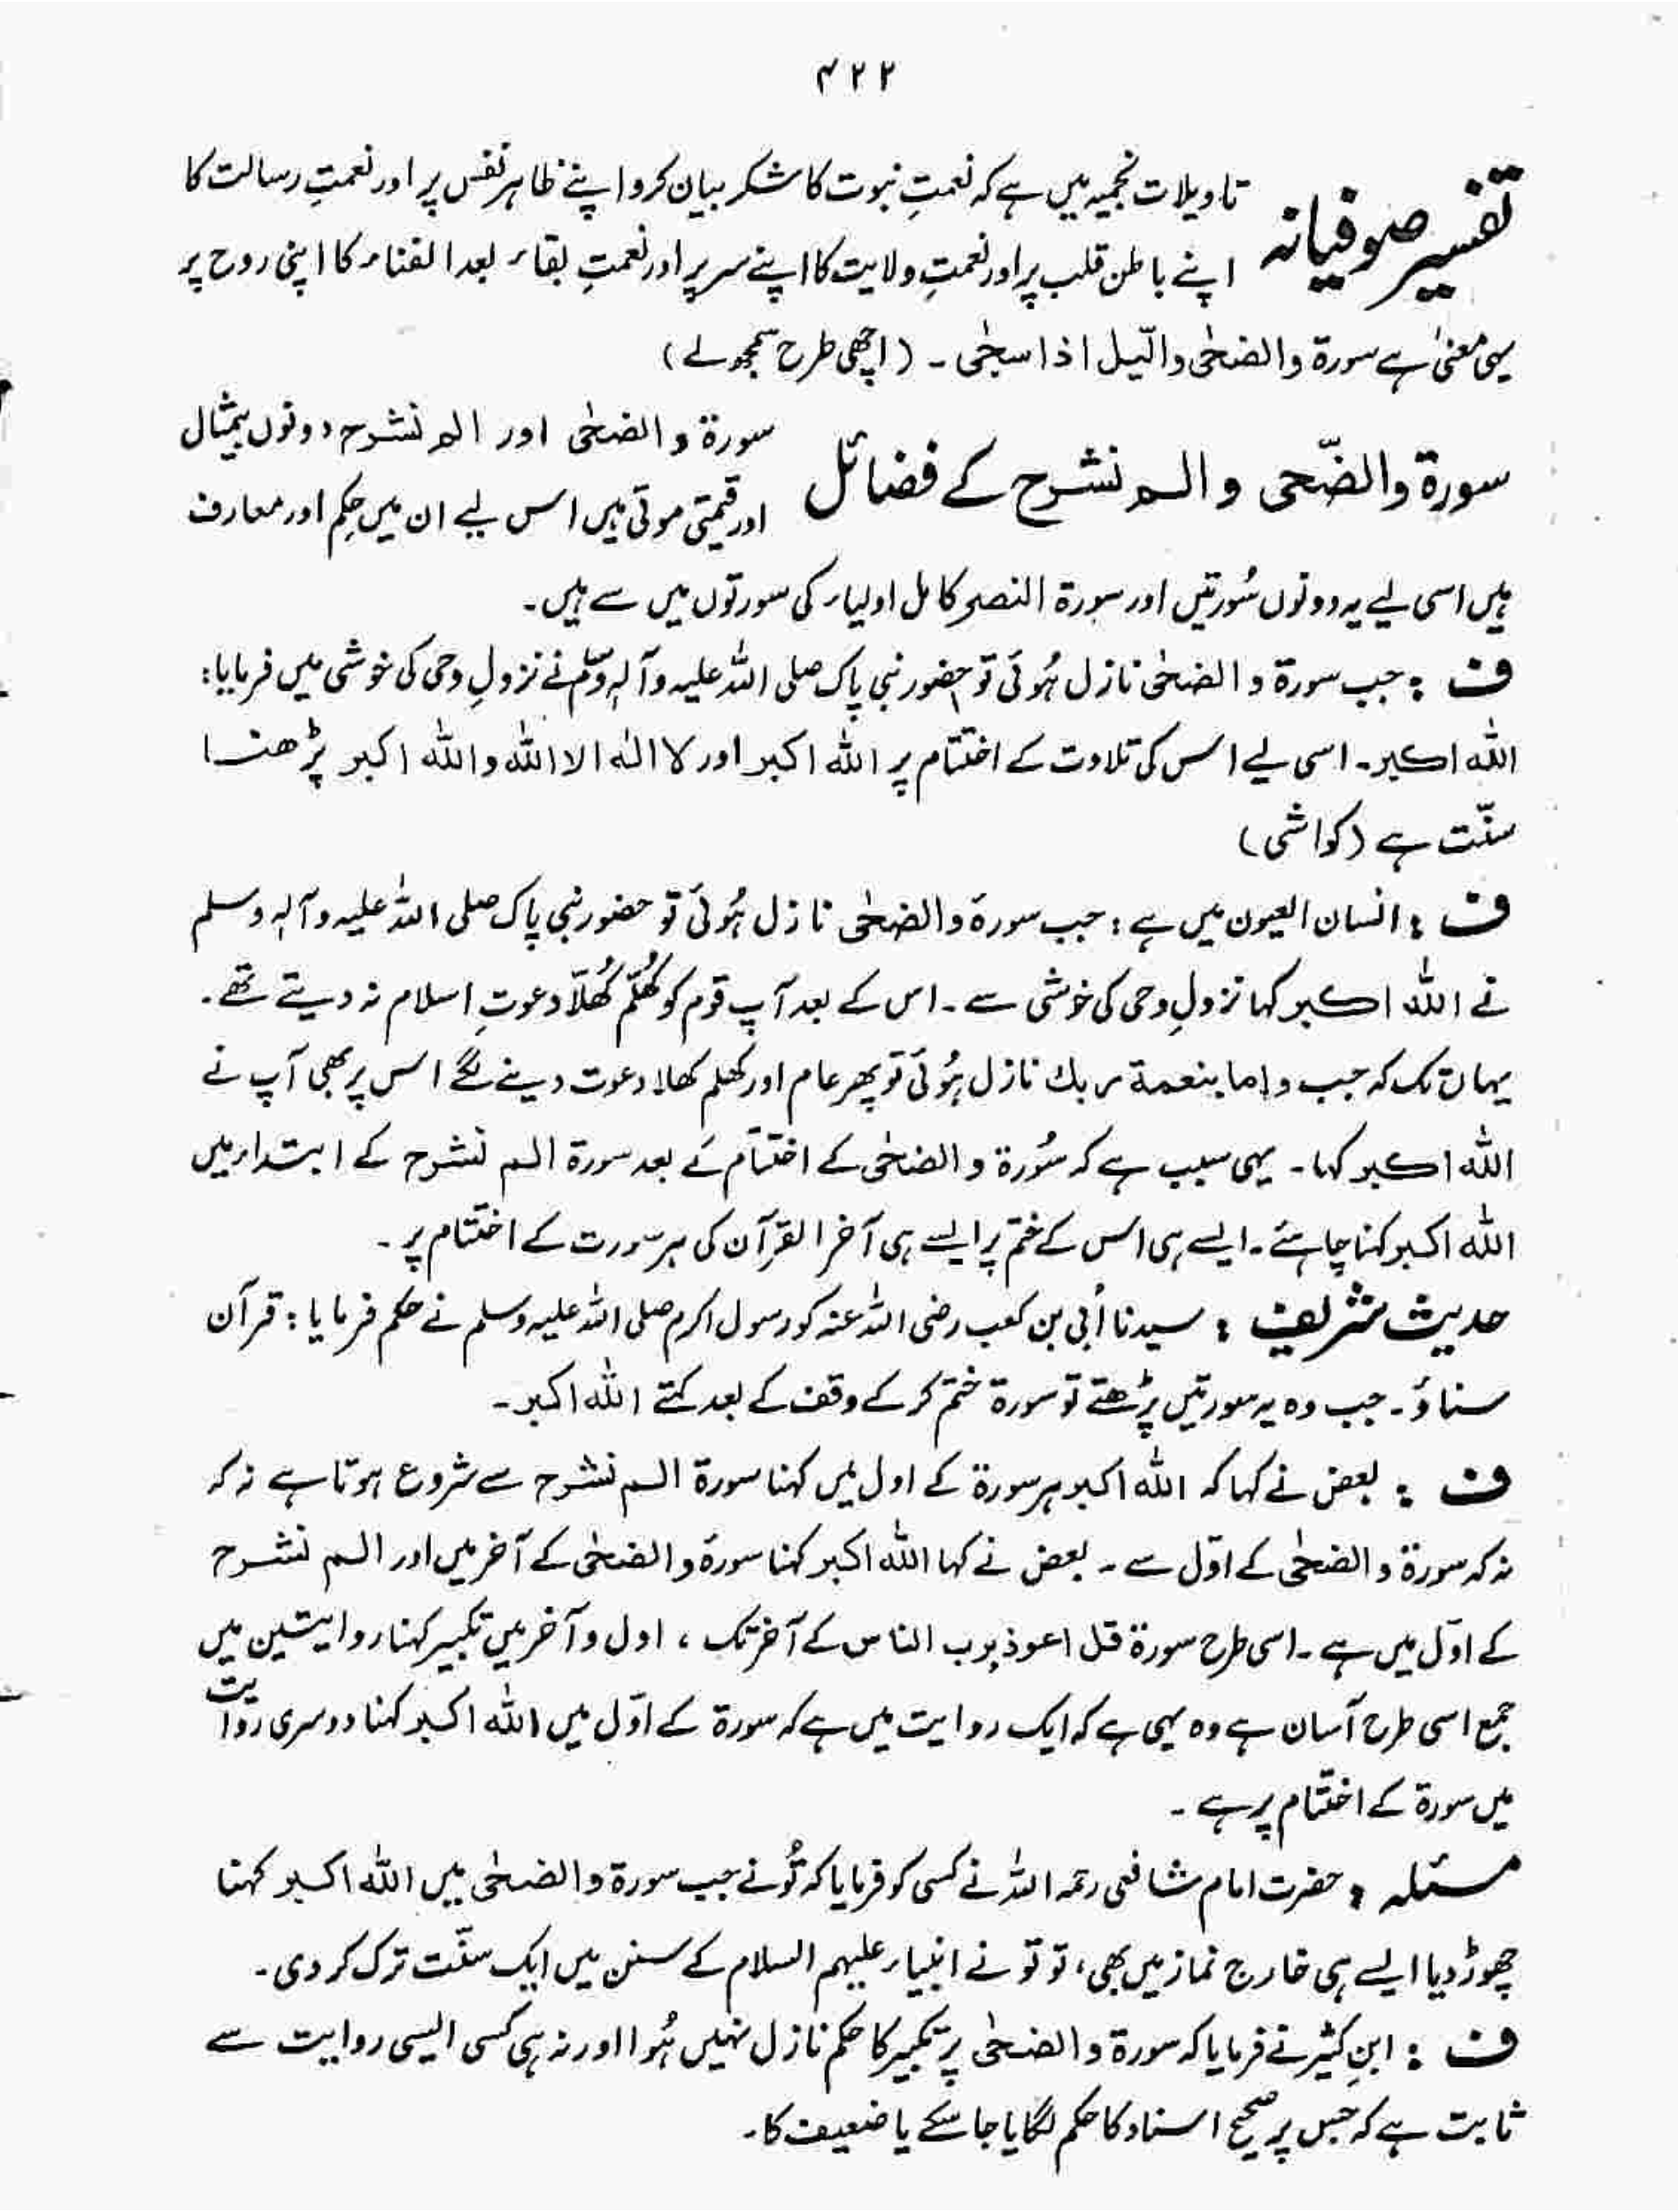 ۴۲۲
تفسیر صوفیانہ
تاویلات نجمیہ میں ہے کہ نعمتِ نبوت کا شکر بیان کرو اپنے ظاہر نفس پر اور نعمتِ رسالت کا
اپنے باطن قلب پر اور نعمتِ ولایت کا اپنے سر پر اور نعمتِ بقاء بعد الفناء کا اپنی روح پر
یہی معنیٰ ہے سورۃ والضحٰی والّیل اذا سجٰی ۔ (اچھی طرح سمجھ لے)
سورۃ والضّحی و الم نشرح کے فضائل
سورۃ والضحٰی اور الم نشرح دونوں بیمثال
اور قیمتی موتی ہیں اس لیے ان میں حِکم اور معارف
ہیں اسی لیے یہ دونوں سُورتیں اور سورۃ النصر کامل اولیاء کی سورتوں میں سے ہیں۔
ف : جب سورۃ والضحٰی نازل ہُوئی تو حضور نبی پاک صلی اللہ علیہ وآلہٖ وسلم نے نزولِ وحی کی خوشی میں فرمایا:
اللہ اکبر۔ اسی لیے اس کی تلاوت کے اختتام پر اللہ اکبر اور لا الٰہ الا اللہ واللہ اکبر پڑھنا
سنّت ہے (کواشی)
ف : انسان العیون میں ہے : جب سورۃ والضحٰی نازل ہُوئی تو حضور نبی پاک صلی اللہ علیہ وآلہٖ وسلم
نے اللہ اکبر کہا نزولِ وحی کی خوشی سے ۔ اس کے بعد آپ قوم کو کھُلّم کھُلّا دعوتِ اسلام نہ دیتے تھے۔
یہاں تک کہ جب واما بنعمة ربك نازل ہُوئی تو پھر عام اور کھلم کھلا دعوت دینے لگے اس پر بھی آپ نے
اللہ اکبر کہا۔ یہی سبب ہے کہ سُورۃ والضحٰی کے اختتام کے بعد سورۃ الم نشرح کے ابتداء میں
اللہ اکبر کہنا چاہئے ۔ ایسے ہی اس کے ختم پر ایسے ہی آخر القرآن کی ہر سورت کے اختتام پر ۔
حدیث شریف : سیدنا اُبی بن کعب رضی اللہ عنہ کو رسول اکرم صلی اللہ علیہ وسلم نے حکم فرمایا : قرآن
سناؤ۔ جب وہ یہ سورتیں پڑھتے تو سورۃ ختم کر کے وقف کے بعد کہتے اللہ اکبر۔
ف : بعض نے کہا کہ اللہ اکبر ہر سورۃ کے اول میں کہنا سورۃ الم نشرح سے شروع ہوتا ہے نہ کہ
نہ کہ سورۃ والضحٰی کے اوّل سے ۔ بعض نے کہا اللہ اکبر کہنا سورۃ والضحٰی کے آخر میں اور الم نشرح
کے اوّل میں ہے ۔ اسی طرح سورۃ قل اعوذ برب الناس کے آخر تک ، اول و آخر میں تکبیر کہنا روایتین میں
جمع اسی طرح آسان ہے وہ یہی ہے کہ ایک روایت میں ہے کہ سورۃ کے اوّل میں اللہ اکبر کہنا دوسری روایت
میں سورۃ کے اختتام پر ہے ۔
مسئلہ : حضرت امام شافعی رحمہ اللہ نے کسی کو فرمایا کہ تُو نے جب سورۃ والضحٰی میں اللہ اکبر کہنا
چھوڑ دیا ایسے ہی خارج نماز میں بھی ، تو تو نے انبیاء علیہم السلام کے سنن میں ایک سنّت ترک کر دی۔
ف : ابنِ کثیر نے فرمایا کہ سورۃ والضحٰی پر تکبیر کا حکم نازل نہیں ہُوا اور نہ ہی کسی ایسی روایت سے
ثابت ہے کہ جس پر صحیح اسناد کا حکم لگایا جا سکے یا ضعیف کا۔